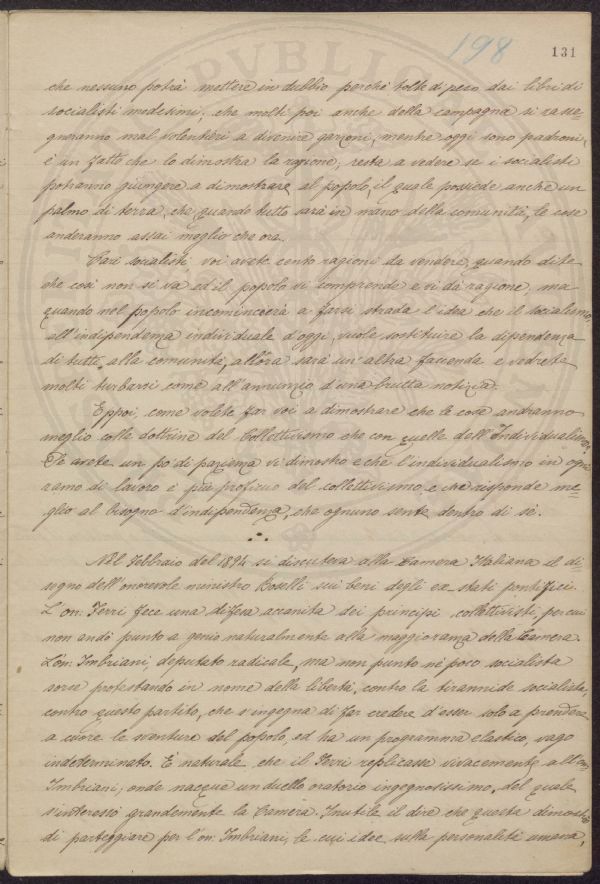 198
131
che nessuno potrà mettere in dubbio perché tolte di peso dai libri di
socialisti medesimi; che molti poi anche della campagna si rasse-
gneranno mal volentieri a divenire garzoni, mentre oggi sono padroni,
è un fatto che lo dimostra la ragione; resta a vedere se i socialisti
potranno giungere a dimostrare al popolo, il quale possiede anche un
palmo di terra, che quando tutto sarà in mano della comunità, le cose
anderanno assai meglio che ora.
Cari socialisti, voi avete cento ragioni da vendere, quando dite
che così non si va ed il popolo vi comprende e vi dà ragione, ma
quando nel popolo incomincerà a farsi strada l'idea che il socialismo,
all'indipendenza individuale d'oggi, vuole sostituire la dipendenza
di tutti alla comunità, allora sarà un'altra faccenda e vedrete
molti turbarsi come all'annunzio d'una brutta notizia.
Eppoi, come volete far voi a dimostrare che le cose andranno
meglio colle dottrine del Collettivismo che con quelle dell'Individualismo?
Se avete un po' di pazienza vi dimostro e che l'individualismo in ogni
ramo di lavoro è più proficuo del collettivismo, e che risponde me-
glio al bisogno d'indipendenza, che ognuno sente dentro di sé.
Nel Febbraio del 1894 si discuteva alla Camera Italiana il di-
segno dell'onorevole ministro Boselli sui beni degli ex stati pontifici.
L'on: Ferri fece una difesa accanita dei principi collettivisti, per cui
non andò punto a genio naturalmente alla maggioranza della Camera.
L'on: Imbriani, deputato radicale, ma non punto né poco socialista
sorse protestando in nome della libertà, contro la tirannide socialista,
contro questo partito, che s'ingegna di far credere d'esser solo a prendere
a cuore le sventure del popolo, ed ha un programma elastico, vago
indeterminato. È naturale, che il Ferri replicasse vivacemente all'on:
Imbriani; onde nacque un duello oratorio ingegnosissimo, del quale
s'interessò grandemente la Camera. Inutile il dire che questa dimostrò
di parteggiare per l'on: Imbriani, le cui idee sulla personalità umana,